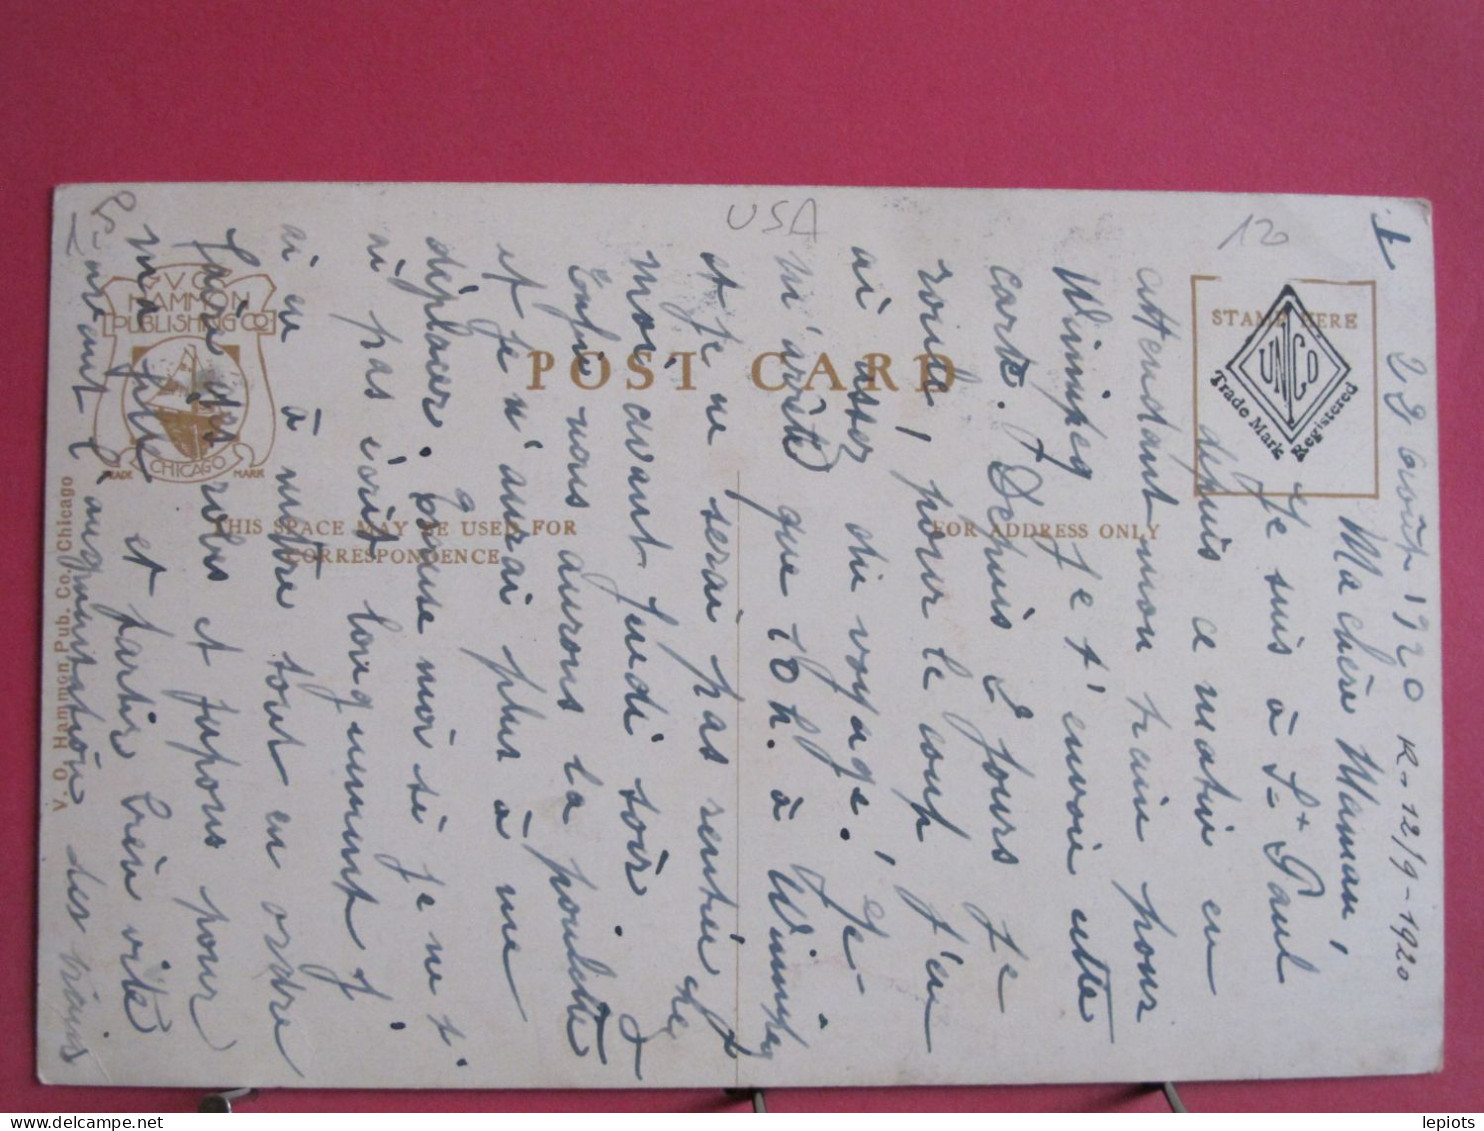 USA
12
1
23 août 1920 R. 12/9-1920
Ma chère Maman,
Je suis à St Paul
depuis ce matin en
attendant mon train pour
Winnipeg je t'envoie cette
carte. Depuis 2 jours je
roule, pour le coup j'en
ai assez du voyage. Je
m'arrête que 10 h. à Winnipeg
et je ne serai pas rentrée chez
moi avant jeudi soir.
Enfin nous aurons la poulette
et je n'aurai plus à me
déplacer. Excuse moi si je ne t'
ai pas écrit longuement j'
ai eu à mettre tout en ordre
faire des robes et jupons pour
ma fille et partir bien vite
avant l'augmentation des trains
POST CARD
THIS SPACE MAY BE USED FOR
CORRESPONDENCE
FOR ADDRESS ONLY
STAMP HERE
UNCO
Trade Mark Registered
V.O.
HAMMON
PUBLISHING CO
CHICAGO
TRADE MARK
V. O. Hammon Pub. Co., Chicago
lepiots
www.delcampe.net